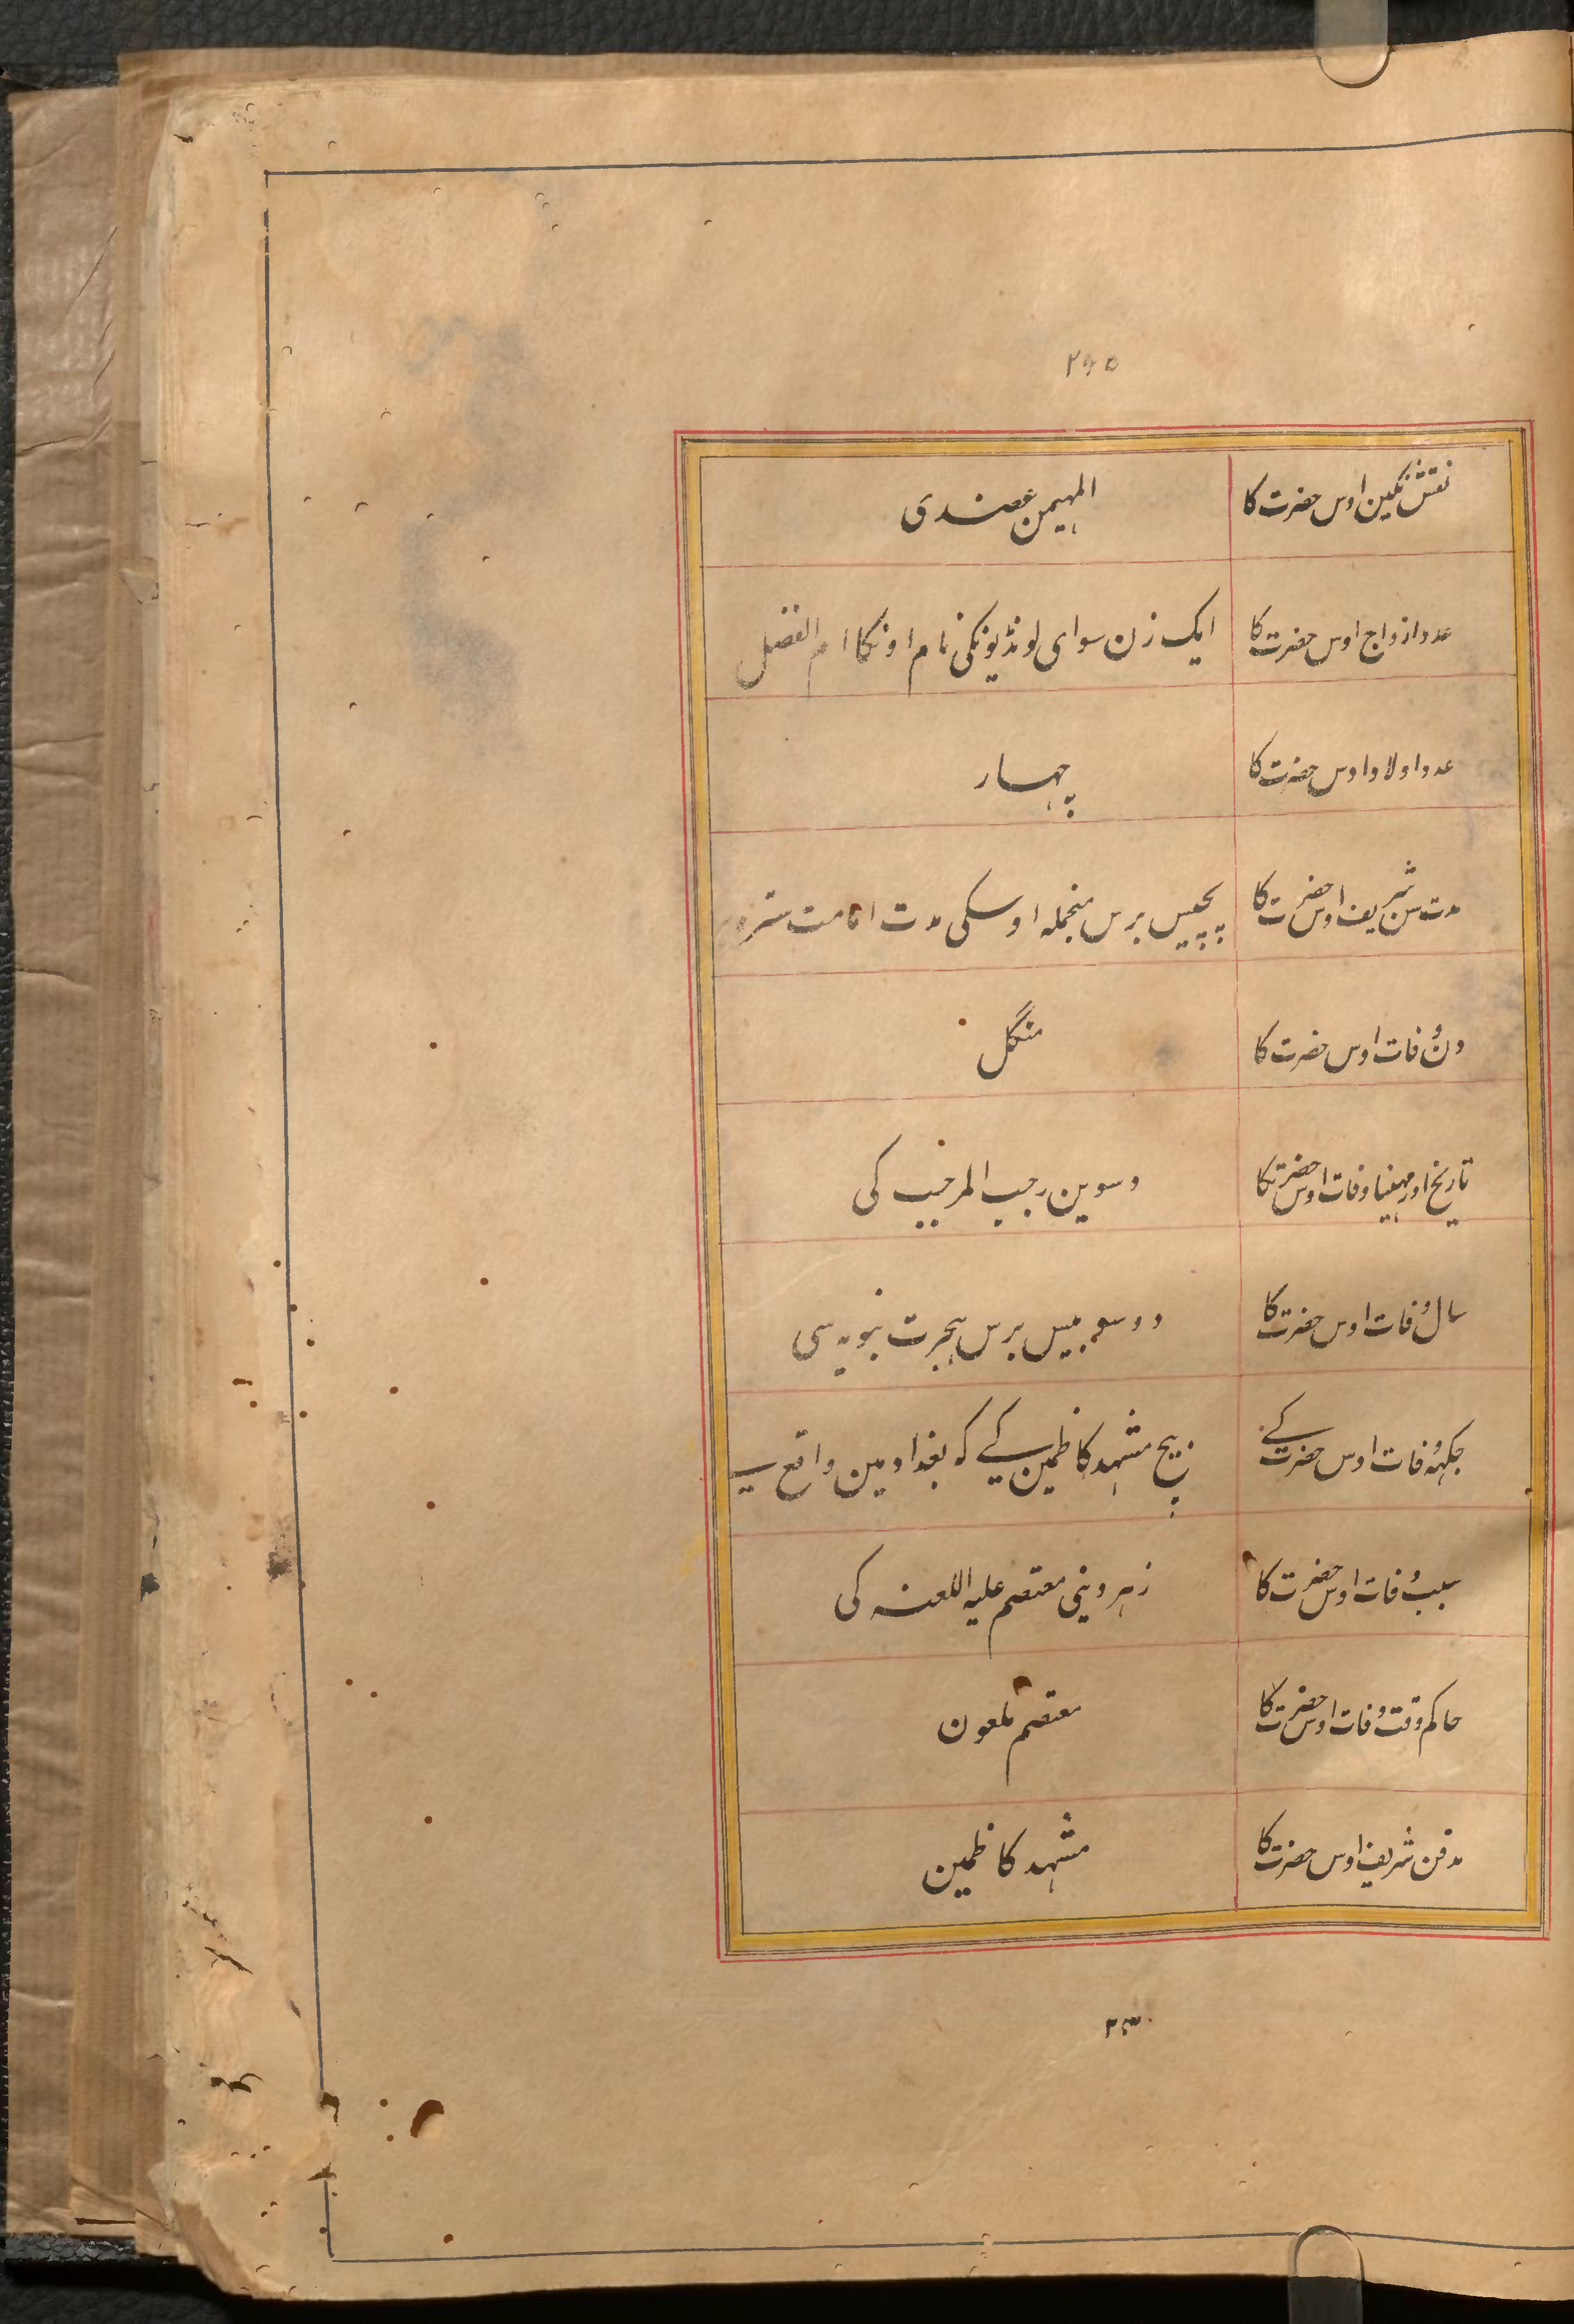 ۲۹۵
نقش نگین اوس حضرت کا
المہیمن عضدی
عدد ازواج اوس حضرت کا
ایک زن سوای لونڈیونکی نام اونکا ام الفضل
عدد اولاد اوس حضرت کا
چہار
مدت سن شریف اوس حضرت کا
پچیس برس منجملہ اوسکی مدت امامت سترہ
دن وفات اوس حضرت کا
منگل
تاریخ اور مہینا وفات اوس حضرت کا
دسوین رجب المرجب کی
سال وفات اوس حضرت کا
دو سو بیس برس ہجرت نبویہ سی
جگہہ وفات اوس حضرت کے
بیچ مشہد کاظمین کے کہ بغداد مین واقع ہے
سبب وفات اوس حضرت کا
زہر دینی معتصم علیہ اللعنہ کی
حاکم وقت وفات اوس حضرت کا
معتصم ملعون
مدفن شریف اوس حضرت کا
مشہد کاظمین